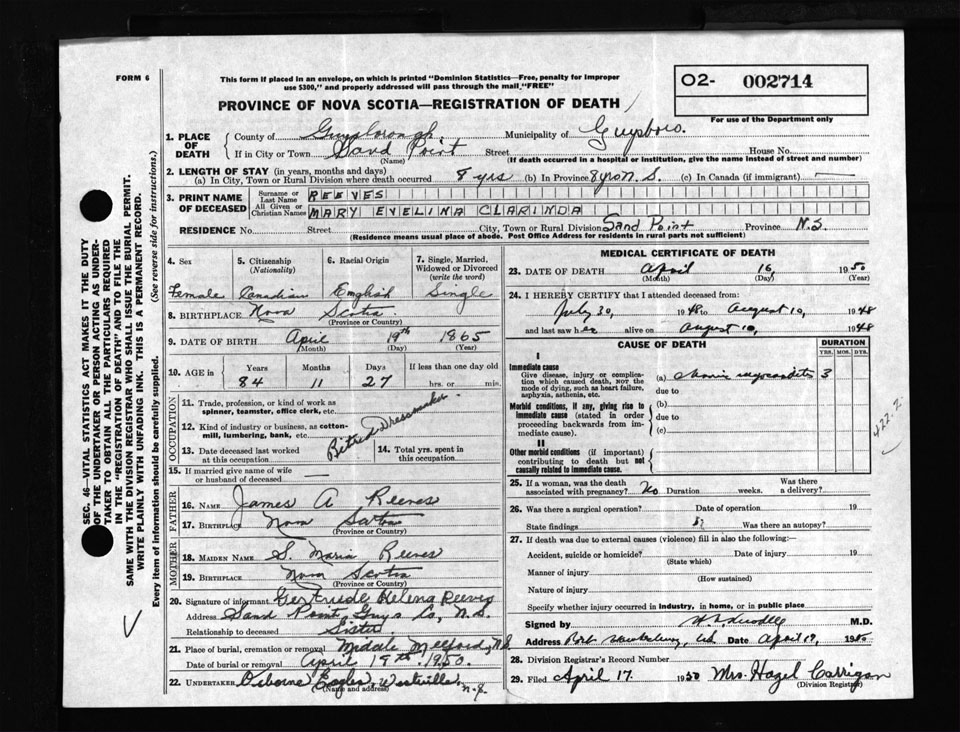 FORM 6
This form if placed in an envelope, on which is printed "Dominion Statistics—Free, penalty for improper
use $300," and properly addressed will pass through the mail "FREE"
O2- 002714
For use of the Department only
PROVINCE OF NOVA SCOTIA—REGISTRATION OF DEATH
SEC. 46—VITAL STATISTICS ACT MAKES IT THE DUTY
OF THE UNDERTAKER OR PERSON ACTING AS UNDER-
TAKER TO OBTAIN ALL THE PARTICULARS REQUIRED
IN THE "REGISTRATION OF DEATH" AND TO FILE THE
SAME WITH THE DIVISION REGISTRAR WHO SHALL ISSUE THE BURIAL PERMIT.
WRITE PLAINLY WITH UNFADING INK. THIS IS A PERMANENT RECORD.
Every item of information should be carefully supplied. (See reverse side for instructions.)
1. PLACE OF DEATH
County of Guysborough Municipality of Guysboro.
If in City or Town Sand Point Street House No.
(Name) (If death occurred in a hospital or institution, give the name instead of street and number)
2. LENGTH OF STAY (in years, months and days)
(a) In City, Town or Rural Division where death occurred 8 yrs (b) In Province N.S. (c) In Canada (if immigrant) —
3. PRINT NAME OF DECEASED
Surname or Last Name REEVES
All Given or Christian Names MARY EVELINA CLARINDA
RESIDENCE No. Street City, Town or Rural Division Sand Point Province N.S.
(Residence means usual place of abode. Post Office Address for residents in rural parts not sufficient)
4. Sex 5. Citizenship (Nationality) 6. Racial Origin 7. Single, Married, Widowed or Divorced (write the word)
Female Canadian English Single
8. BIRTHPLACE Nova Scotia
(Province or Country)
9. DATE OF BIRTH April 19th 1865
(Month) (Day) (Year)
10. AGE in Years Months Days If less than one day old
84 11 27 hrs. or min.
OCCUPATION
11. Trade, profession, or kind of work as
spinner, teamster, office clerk, etc.
12. Kind of industry or business, as cotton-
mill, lumbering, bank, etc.
Retired Dressmaker.
13. Date deceased last worked at this occupation 14. Total yrs. spent in this occupation
15. If married give name of wife
or husband of deceased
FATHER
16. NAME James A Reeves
17. BIRTHPLACE Nova Scotia
(Province or Country)
MOTHER
18. MAIDEN NAME S. Maria Reeves
19. BIRTHPLACE Nova Scotia
(Province or Country)
20. Signature of informant Gertrude Helena Reeves
Address Sand Point, Guys Co, N.S.
Relationship to deceased Sister
21. Place of burial, cremation or removal Middle Melford, N.S.
Date of burial or removal April 19th 1950.
22. UNDERTAKER Osborne Eagles, Westville, N.S.
(Name and address)
MEDICAL CERTIFICATE OF DEATH
23. DATE OF DEATH April 16, 1950
(Month) (Day) (Year)
24. I HEREBY CERTIFY that I attended deceased from:
July 30, 1948 to August 10, 1948
and last saw her alive on August 10, 1948
CAUSE OF DEATH DURATION
YRS. MOS. DYS.
I
Immediate cause
Give disease, injury or complica-
tion which caused death, NOT the
mode of dying, such as heart failure,
asphyxia, asthenia, etc.
(a) Chronic myocarditis 3
due to
Morbid conditions, if any, giving rise to
immediate cause (stated in order
proceeding backwards from im-
mediate cause).
(b)
due to
(c)
II
Other morbid conditions (if important)
contributing to death but not
causally related to immediate cause.
422.2
25. If a woman, was the death associated with pregnancy? No Duration weeks. Was there a delivery?
26. Was there a surgical operation? Date of operation 19
State findings Was there an autopsy?
27. If death was due to external causes (violence) fill in also the following:—
Accident, suicide or homicide? Date of injury 19
(State which)
Manner of injury
(How sustained)
Nature of injury
Specify whether injury occurred in industry, in home, or in public place
Signed by M.D.
Address Port Hawkesbury, Date April 17, 1950
28. Division Registrar's Record Number
29. Filed April 17 1950 Mrs. Hazel Carrigan
(Division Registrar)